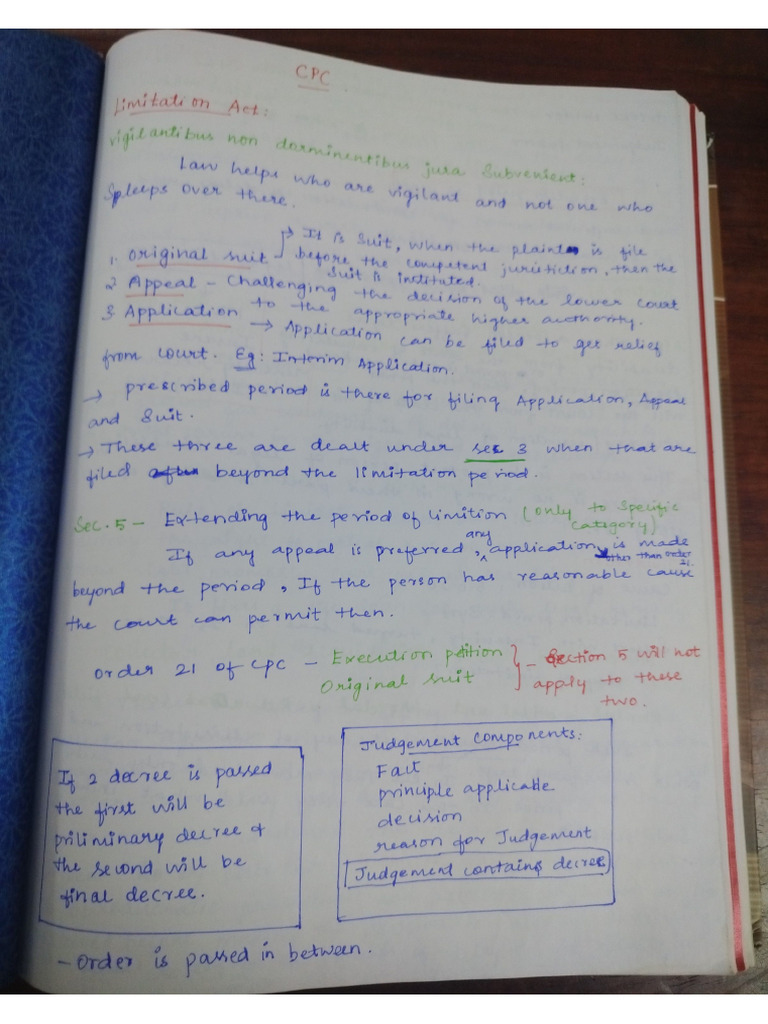 CPC
Limitation Act:
Vigilantibus non dorminentibus jura Subvenient:
Law helps who are vigilant and not one who
Spleeps over there.
1. Original suit → It is Suit, when the plaint is file
before the competent juristiction, then the
Suit is instituted.
2 Appeal - Challenging the decision of the lower court
to the appropriate higher authority.
3 Application → Application can be filed to get relief
from court. Eg: Interim Application.
→ prescribed period is there for filing Application, Appeal
and Suit.
→ These three are dealt under sec 3 when that are
filed beyond the limitation period.
Sec. 5 - Extending the period of limition (only to specific
category)
If any appeal is preferred, any application other than order 21. is made
beyond the period, If the person has reasonable cause
the court can permit then.
Order 21 of CPC - Execution petition
Original suit } - Section 5 will not
apply to these
two.
If 2 decree is passed
the first will be
priliminary decree &
the second will be
final decree.
Judgement components:
Fact
principle applicable
decision
reason for Judgement
Judgement contains decree
- Order is passed in between.